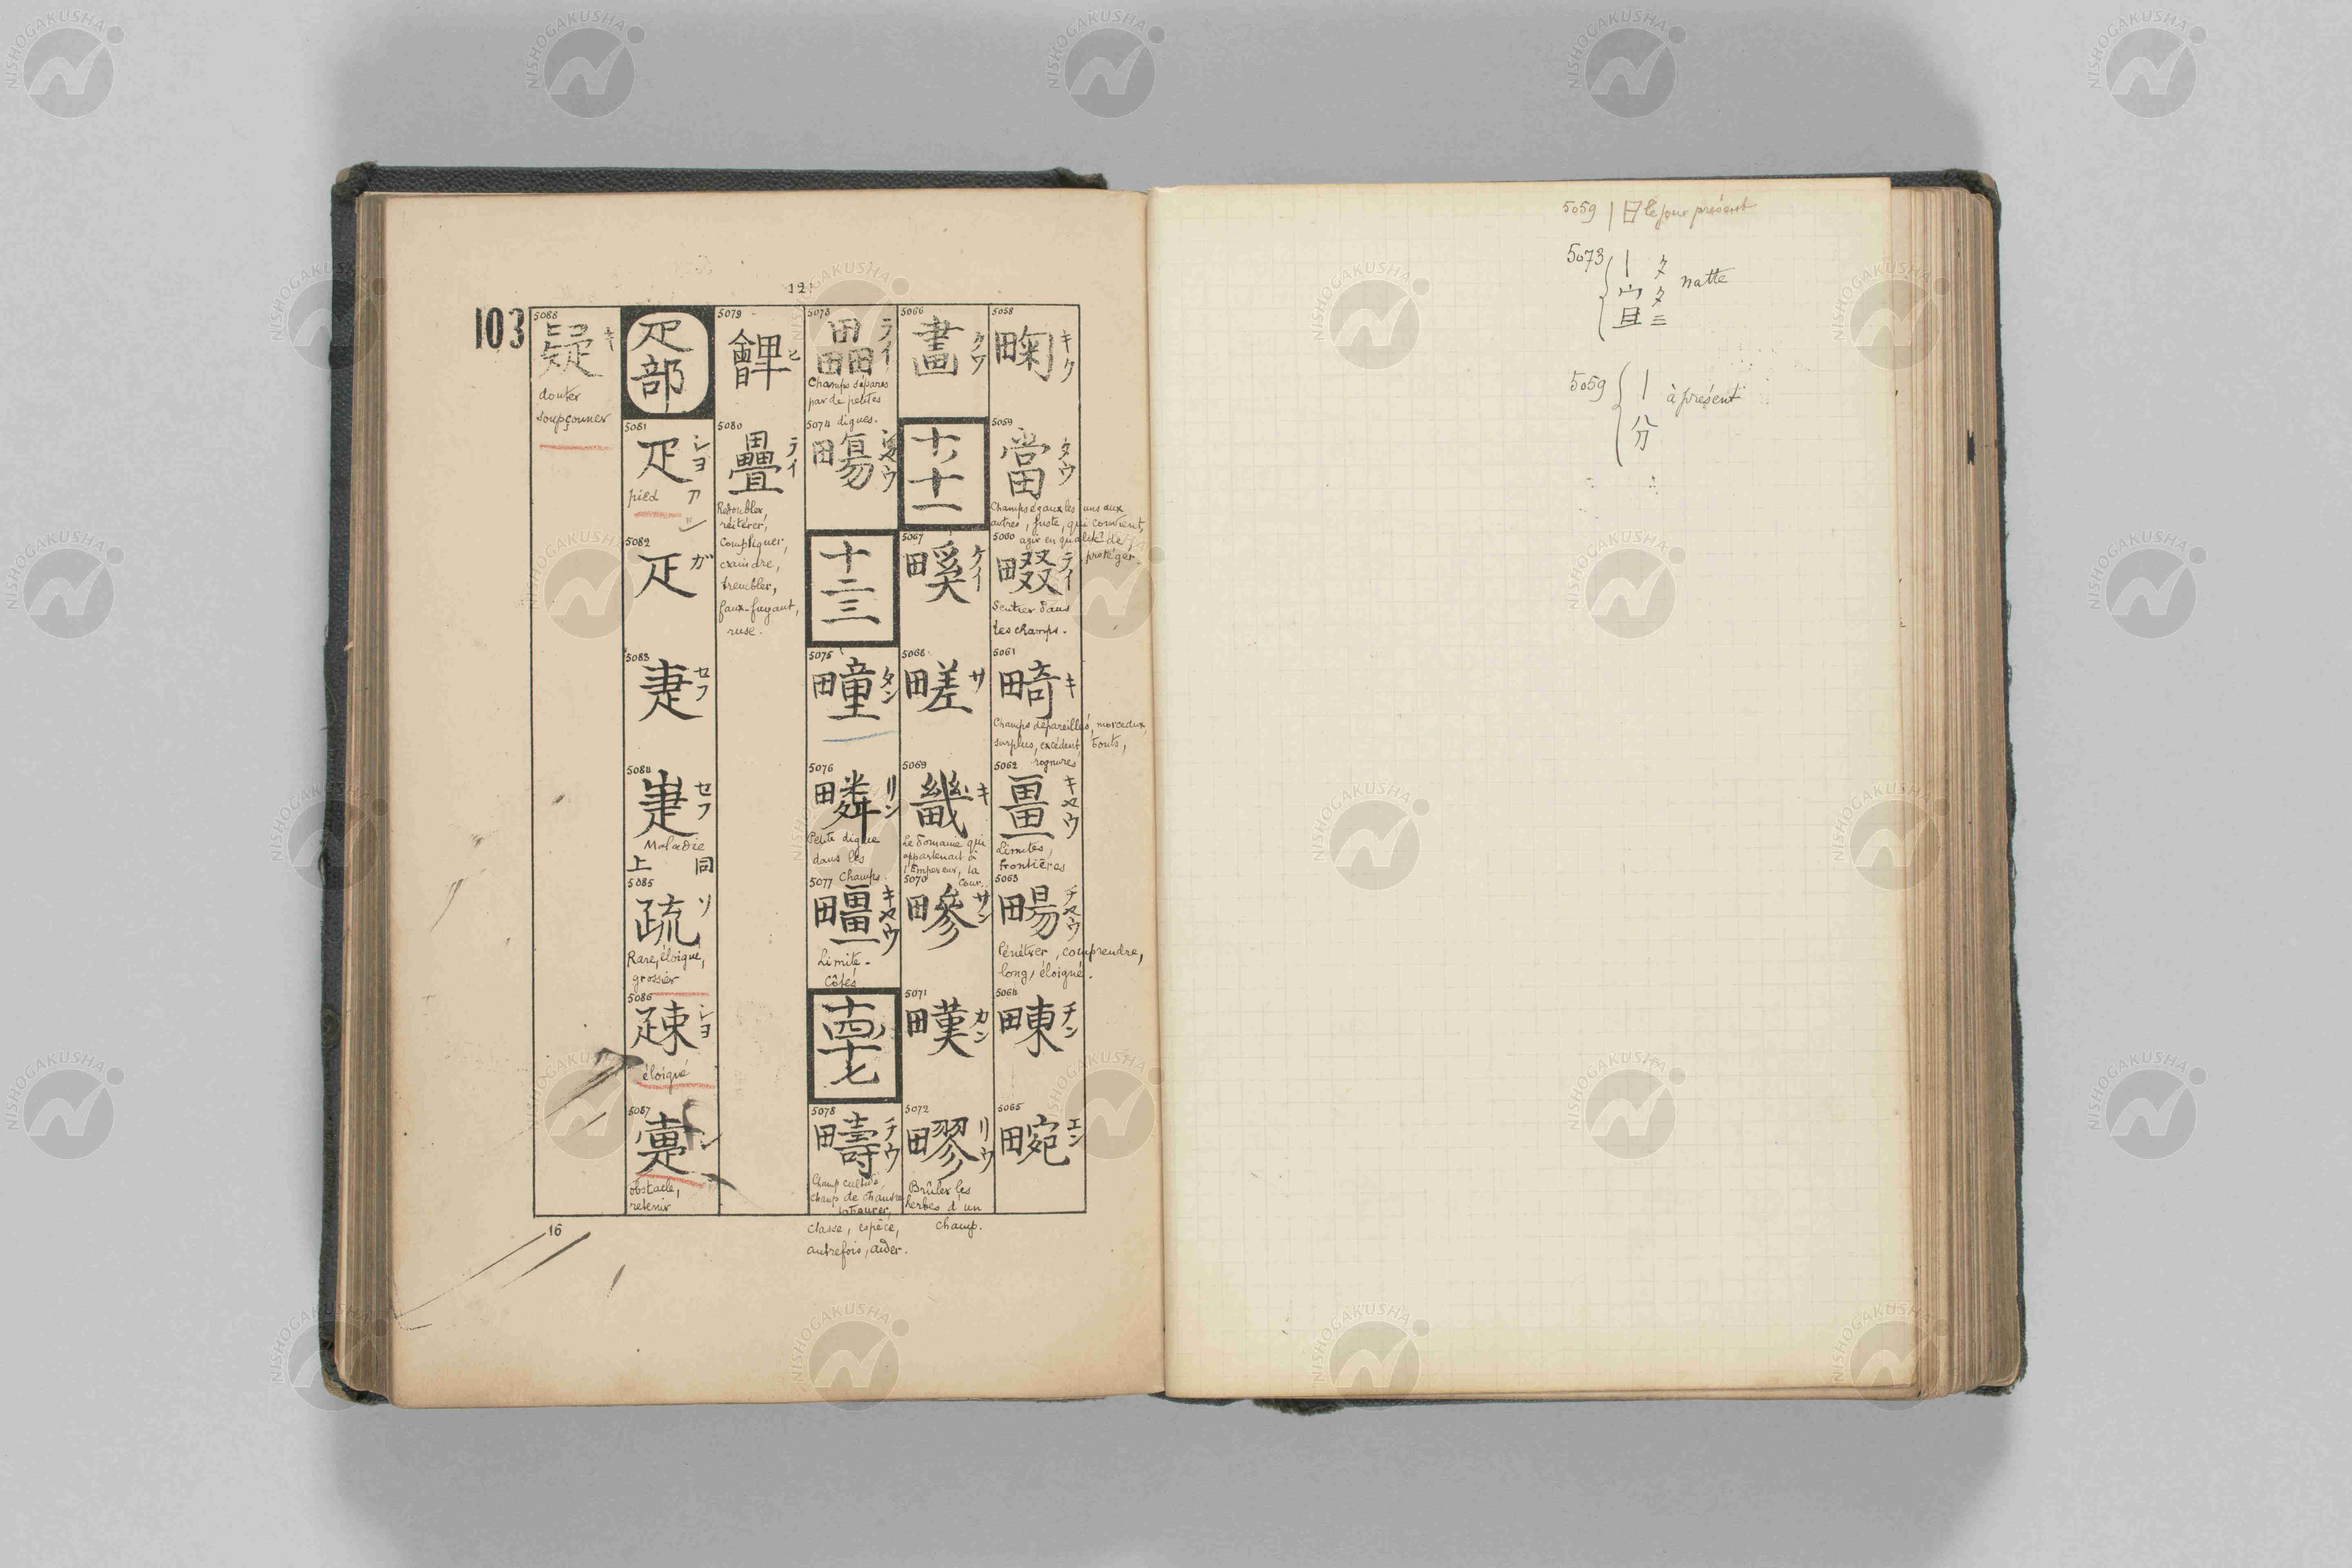 121
103
5058
畮 キク
5059
當 タウ
Champs égaux les uns aux
autres, juste, qui convient,
agir en qualité de,
protéger.
5060
畷 テイ
Sentier dans
les champs.
5061
畸 キ
Champs dépareillés, morceaux,
surplus, excédent, bouts,
rognures
5062
畺 キヤウ
Limites,
frontières
5063
畼 チヤウ
Pénétrer, comprendre,
long, éloigné.
5064
𤲚 チン
5065
畹 エン
5066
畫 クワ
十、十一
5067
谿 ケイ
5068
畻 サ
5069
畿 キ
Le domaine qui
appartenait à
l'Empereur, la
Cour.
5070
サン
5071
暵 カン
5072
疁 リウ
Brûler les
herbes d'un
champ.
5073
畾 テイ
Champs séparés
par de petites
digues.
5074
畼
十二三
5075
疃 タン
5076
疄 リン
Petite digue
dans les
Champs.
5077
疆 キヤウ
Limite.
Côtés
十四、十七
5078
疇 チウ
Champ cultivé,
champ de chanvre,
labourer,
classe, espèce,
autrefois, aider.
5079
ヒ
5080
疊 テイ
Redoubler,
réitérer,
Compliquer,
craindre,
trembler,
faux-fuyant,
ruse.
疋部
5081
疋 シヨ
pied
5082
疋 ガ
5083
疌 セフ
5084
セフ
Maladie
上 同
5085
疏 ソ
Rare, éloigné,
grossier
5086
疎 シヨ
éloigné
5087
疐
obstacle,
retenir
5088
疑 キ
douter
soupçonner
16
5059 | 日 le jour présent
5073 { | 宜 タタミ natte
5059 { | 分 à présent